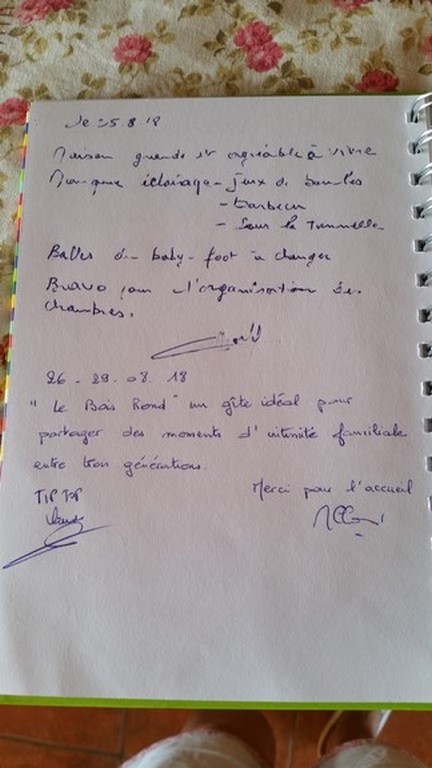 le 25.8.18
Maison grande et agréable à vivre
Manque éclairage - jeux de boules
- barbecue
- Sous la Tonnelle
Balles du baby-foot à changer
Bravo pour l'organisation des
chambres.
26 - 29.08.18
"Le Bois Rond" un gîte idéal pour
partager des moments d'intimité familiale
entre trois générations.
TIP TOP
Merci pour l'accueil